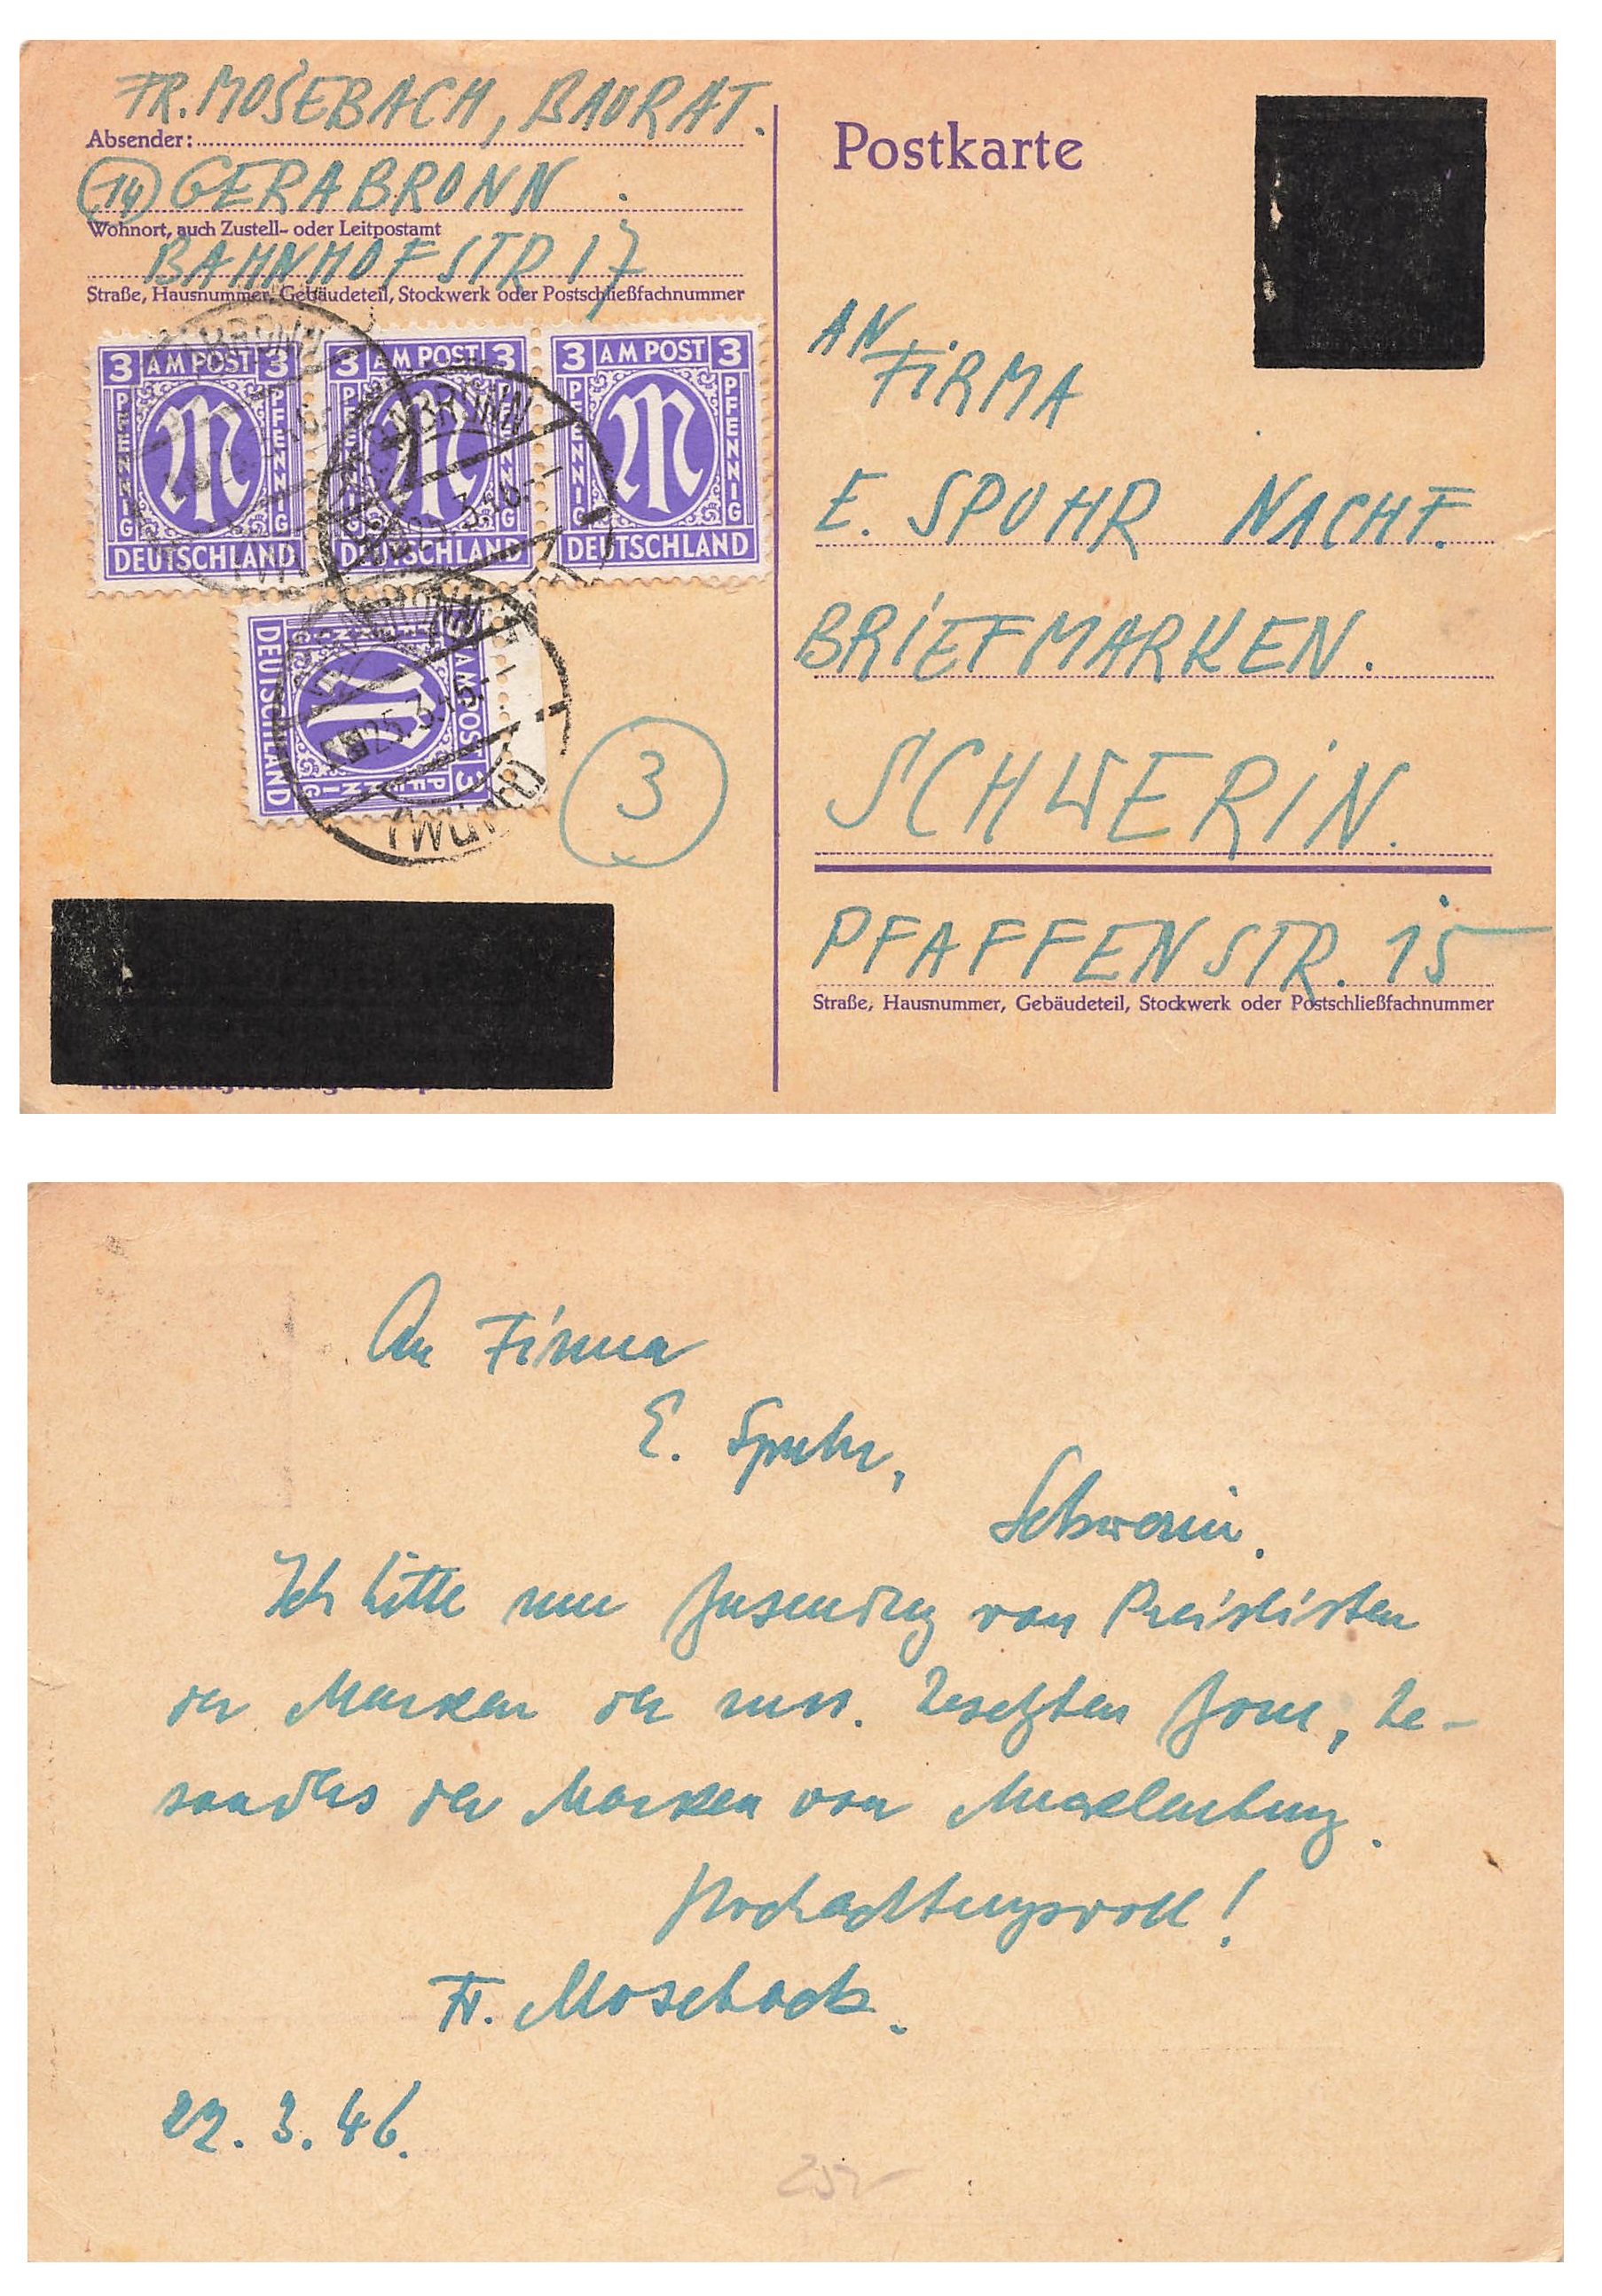 FR. MOSEBACH, BAURAT.
Absender:
(14) GERABRONN.
Wohnort, auch Zustell- oder Leitpostamt
BAHNHOFSTR 17
Straße, Hausnummer, Gebäudeteil, Stockwerk oder Postschließfachnummer
Postkarte
3 AM POST 3
PFENNIG PFENNIG
DEUTSCHLAND
3 AM POST 3
PFENNIG PFENNIG
DEUTSCHLAND
3 AM POST 3
PFENNIG PFENNIG
DEUTSCHLAND
3 AM POST 3
PFENNIG PFENNIG
DEUTSCHLAND
GERABRONN
25.3.46.-
(Württ)
3
AN
FIRMA
E. SPOHR NACHF.
BRIEFMARKEN.
SCHWERIN.
PFAFFENSTR. 15
Straße, Hausnummer, Gebäudeteil, Stockwerk oder Postschließfachnummer
An Firma
E. Spohr,
Schwerin.
Ich bitte um Zusendung von Preislisten
der Marken der russ. besetzten Zone, be-
sonders der Marken von Mecklenburg.
Hochachtungsvoll!
Fr. Mosebach.
22. 3. 46.